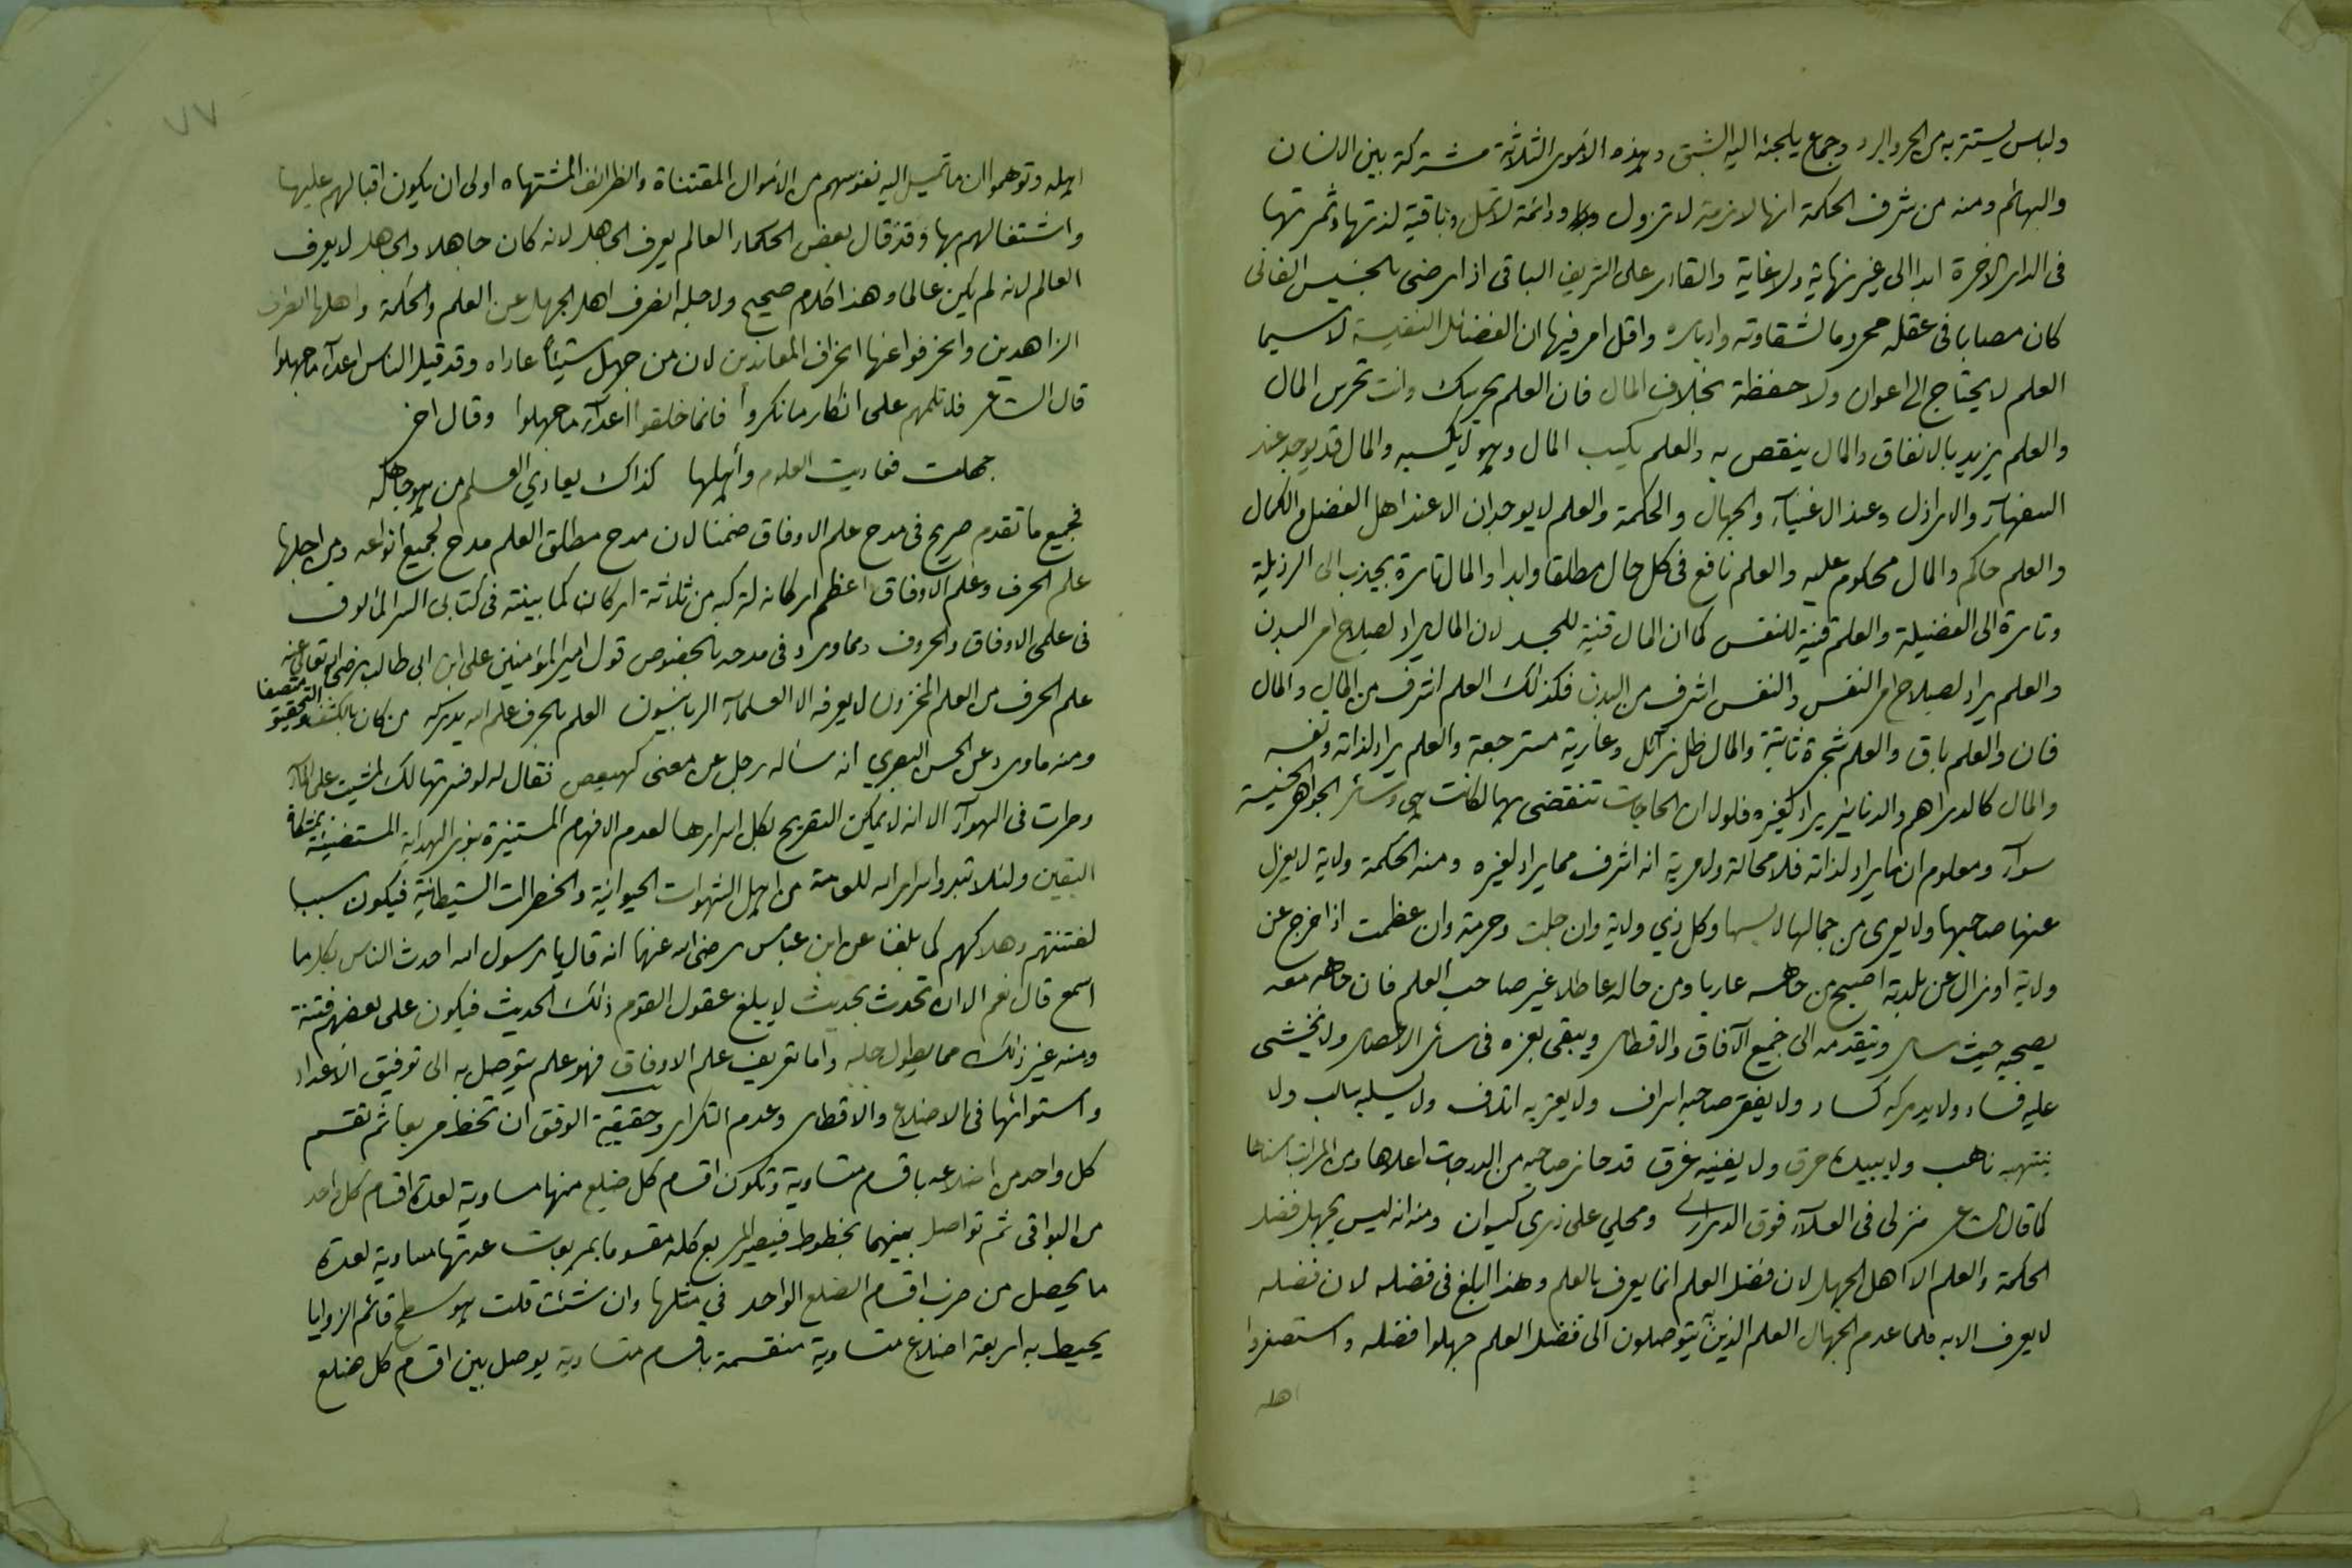 ولباس يستتر به من الحر والبرد وجماع يلجئه اليه الشبق وهذه الامور الثلاثة مشتركة بين الانسان
والبهائم ومنه من شرف الحكمة انها لازمة لا تزول ودائمة لا تمل وباقية لذتها وثمرتها
فى الدار الاخرة ابدا الى غير نهاية ولا غاية والقادر على الشريف الباقى اذا رضى بالخسيس الفانى
كان مصابا فى عقله محروما لشقاوته وادباره واقل امر فيها ان الفضائل النفيسة لا سيما
العلم لا يحتاج الى اعوان ولا حفظة بخلاف المال فان العلم يحرسك وانت تحرس المال
والعلم يزيد بالانفاق والمال ينقص به والعلم يكسب المال وهو لا يكسبه والمال قد يوجد عند
السفهاء والاراذل وعند الاغنياء والجهال والحكمة والعلم لا يوجدان الا عند اهل الفضل والكمال
والعلم حاكم والمال محكوم عليه والعلم نافع فى كل حال مطلقا وابدا والمال تارة يجذب الى الرذيلة
وتارة الى الفضيلة والعلم قنية للنفس كما ان المال قنية للجسد لان المال يراد لصلاح امر البدن
والعلم يراد لصلاح امر النفس والنفس اشرف من البدن فكذلك العلم اشرف من المال والمال
فان والعلم باق والعلم شجرة ثابتة والمال ظل زائل وعارية مسترجعة والعلم يراد لذاته ونفسه
والمال كالدراهم والدنانير يراد لغيره فلولا ان الحاجات تنقضى بها لكانت هى وسائر الجواهر الخسيسة
سواء ومعلوم ان ما يراد لذاته فلا محالة ولا مرية انه اشرف مما يراد لغيره ومنه الحكمة ولاية لا يعزل
عنها صاحبها ولا يعرى من جمالها لابسها وكل ذي ولاية وان جلت وحرمة وان عظمت اذا خرج عن
ولاية او نزال عن بلدته اصبح من جاهه عاريا ومن حاله عاطلا غير صاحب العلم فان جاهه معه
يصحبه حيث سار ويتقدمه الى جميع الآفاق والاقطار ويبقى بعزه فى سائر الاعصار ولا يخشى
عليه فساد ولا يدركه كساد ولا يفقر صاحبه اسراف ولا يعتريه اتلاف ولا يسلبه سالب ولا
ينتهبه ناهب ولا يبيده حرق ولا يفنيه غرق قد حاز صاحبه من الدرجات اعلاها ومن المراتب اسناها
كما قال الشاعر منزلى فى العلاء فوق الدرارى ومحلي على ذرى كيوان ومنه انه ليس يجهل فضل
الحكمة والعلم الا اهل الجهل لان فضل العلم انما يعرف بالعلم وهذا ابلغ فى فضله لان فضله
لا يعرف الا به فلما عدم الجهال العلم الذين به يتوصلون الى فضل العلم جهلوا فضله واستصغروا
اهله
٧٧
اهله وتوهموا ان ما تميل اليه نفوسهم من الاموال المقتناة والظرائف المشتهاه اولى ان يكون اقبالهم عليها
واشتغالهم بها وقد قال بعض الحكماء العالم يعرف الجاهل لانه كان جاهلا والجاهل لا يعرف
العالم لانه لم يكن عالما وهذا كلام صحيح ولاجله انصرف اهل الجهل عن العلم والحكمة واهلها انصراف
الزاهدين وانحرفوا عنها انحراف المعاندين لان من جهل شيئاً عاداه وقد قيل الناس اعداء ما جهلوا
قال الشاعر فلا تلمهم على انكار ما نكروا فانما خلقوا اعداء ما جهلوا وقال اخر
جهلت فعاديت العلوم وأهلها كذاك يعادي العلم من هو جاهله
فجميع ما تقدم صريح فى مدح علم الاوفاق ضمنا لان مدح مطلق العلم مدح لجميع انواعه ومن اجلها
علم الحرف وعلم الاوفاق اعظم اركانه لتركبه من ثلاثة اركان كما بينته فى كتابى السر المألوف
فى علمى الاوفاق والحروف ومما ورد فى مدحه بالخصوص قول امير المؤمنين على ابن ابى طالب رضى الله تعالى عنه
علم الحرف من العلم المخزون لا يعرفه الا العلماء الربانيون العلم بالحرف علم الله يدركه من كان بالكشف والتحقيق متصفا
ومنه ما ورد عن الحسن البصري انه سأله رجل عن معنى كهيعص فقال له لو فسرتها لك لمشيت على الماء
وطرت فى الهواء الا انه لا يمكن التصريح بكل اسرارها لعدم الافهام المستنيرة بنور الهداية المستضيئة بمشكاة
اليقين ولئلا تبدوا اسراره للعامة من اهل الشهوات الحيوانية والخطرات الشيطانية فيكون سببا
لفتنتهم وهلاكهم كما بلغنا عن ابن عباس رضى الله عنهما انه قال يا رسول الله احدث الناس بكل ما
اسمع قال نعم الا ان تحدث بحديث لا يبلغ عقول القوم ذلك الحديث فيكون على بعضهم فتنة
ومنه غير ذلك مما يطول جلبه واما تعريف علم الاوفاق فهو علم يتوصل به الى توفيق الاعداد
واستوائها فى الاضلاع والاقطار وعدم التكرار وحقيقية الوفق ان تخط مربعا ثم تقسم
كل واحد من اضلاعه باقسام متساوية وتكون اقسام كل ضلع منها مساوية لعدة اقسام كل واحد
من البواقى ثم تواصل بينهما بخطوط فيصير المربع كله مقسوما بمربعات عدتها مساوية لعدة
ما يحصل من ضرب اقسام الضلع الواحد في مثلها وان شئت قلت هو سطح قائم الزوايا
يحيط به اربعة اضلاع متساوية منقسمة باقسام متساوية يوصل بين اقسام كل ضلع